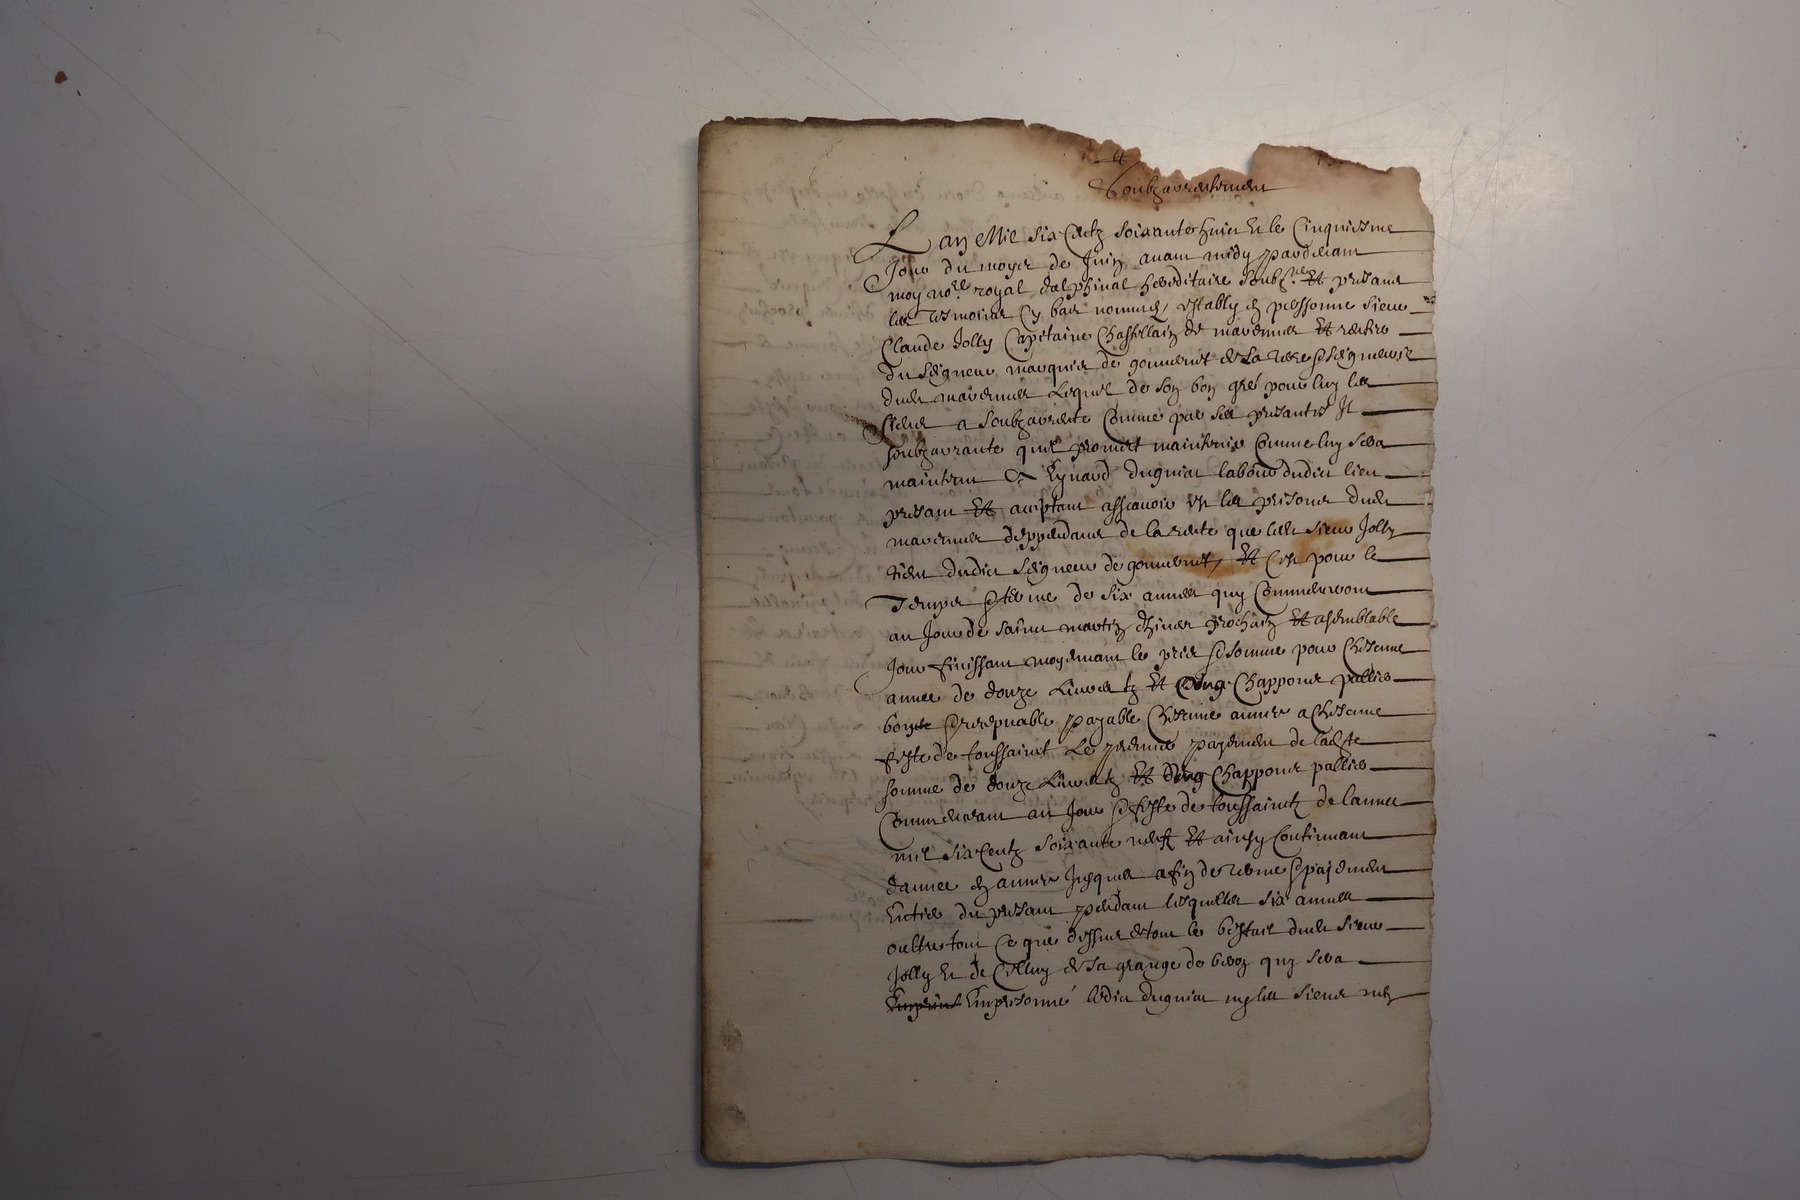 Soubzarrentement
L an Mil six Centz soixante huict Et le Cinquiesme
Jour du moys de Juin avant midy pardevant
moy no.re royal dalphinal hereditaire soubz.ne Et presant
les tesmoins Cy bas nommes, estably en personne sieur
Claude Jolly Capitaine Chastellain de
du seigneur marquis de gouvernet de La terre seigneurie
dudt Lequel de son bon gré pour luy les
siens a soubzarrente Comme par ses presantes Il
soubzarrante quil promet maintenir Comme luy sera
maintenu A Eynard duguiat labour dudict lieu
presant Et acceptant assavoir les prisons dudt
despendant de la rente que ledt sieur Jolly
tient dudict seigneur de gouvernet, Et C'est pour le
Temps terme de six annees quy Commenceront
au Jour de saint martin d'hiver prochain Et a semblable
Jour finissant moyenant le pris somme pour Chescune
annee de douze Livres tz Et Cinq Chappons
bons recepvable payable Chescune annee a Chescune
feste de toussainct Le premier payement de ladte
somme de douze Livres tz Et Cinq Chappons
Commencant au Jour feste de toussainctz de lannee
mil six Centz soixante neuf Et ainsy Continuant
dannee en annee Jusques a fin de terme payement
Entier du presant pendant lesquelles six annees
oultre tout Ce que dessus le bestail dudt sieur
Jolly Et de Celluy de sa grange de quy sera
Emprisonné ledict duguiat les siens